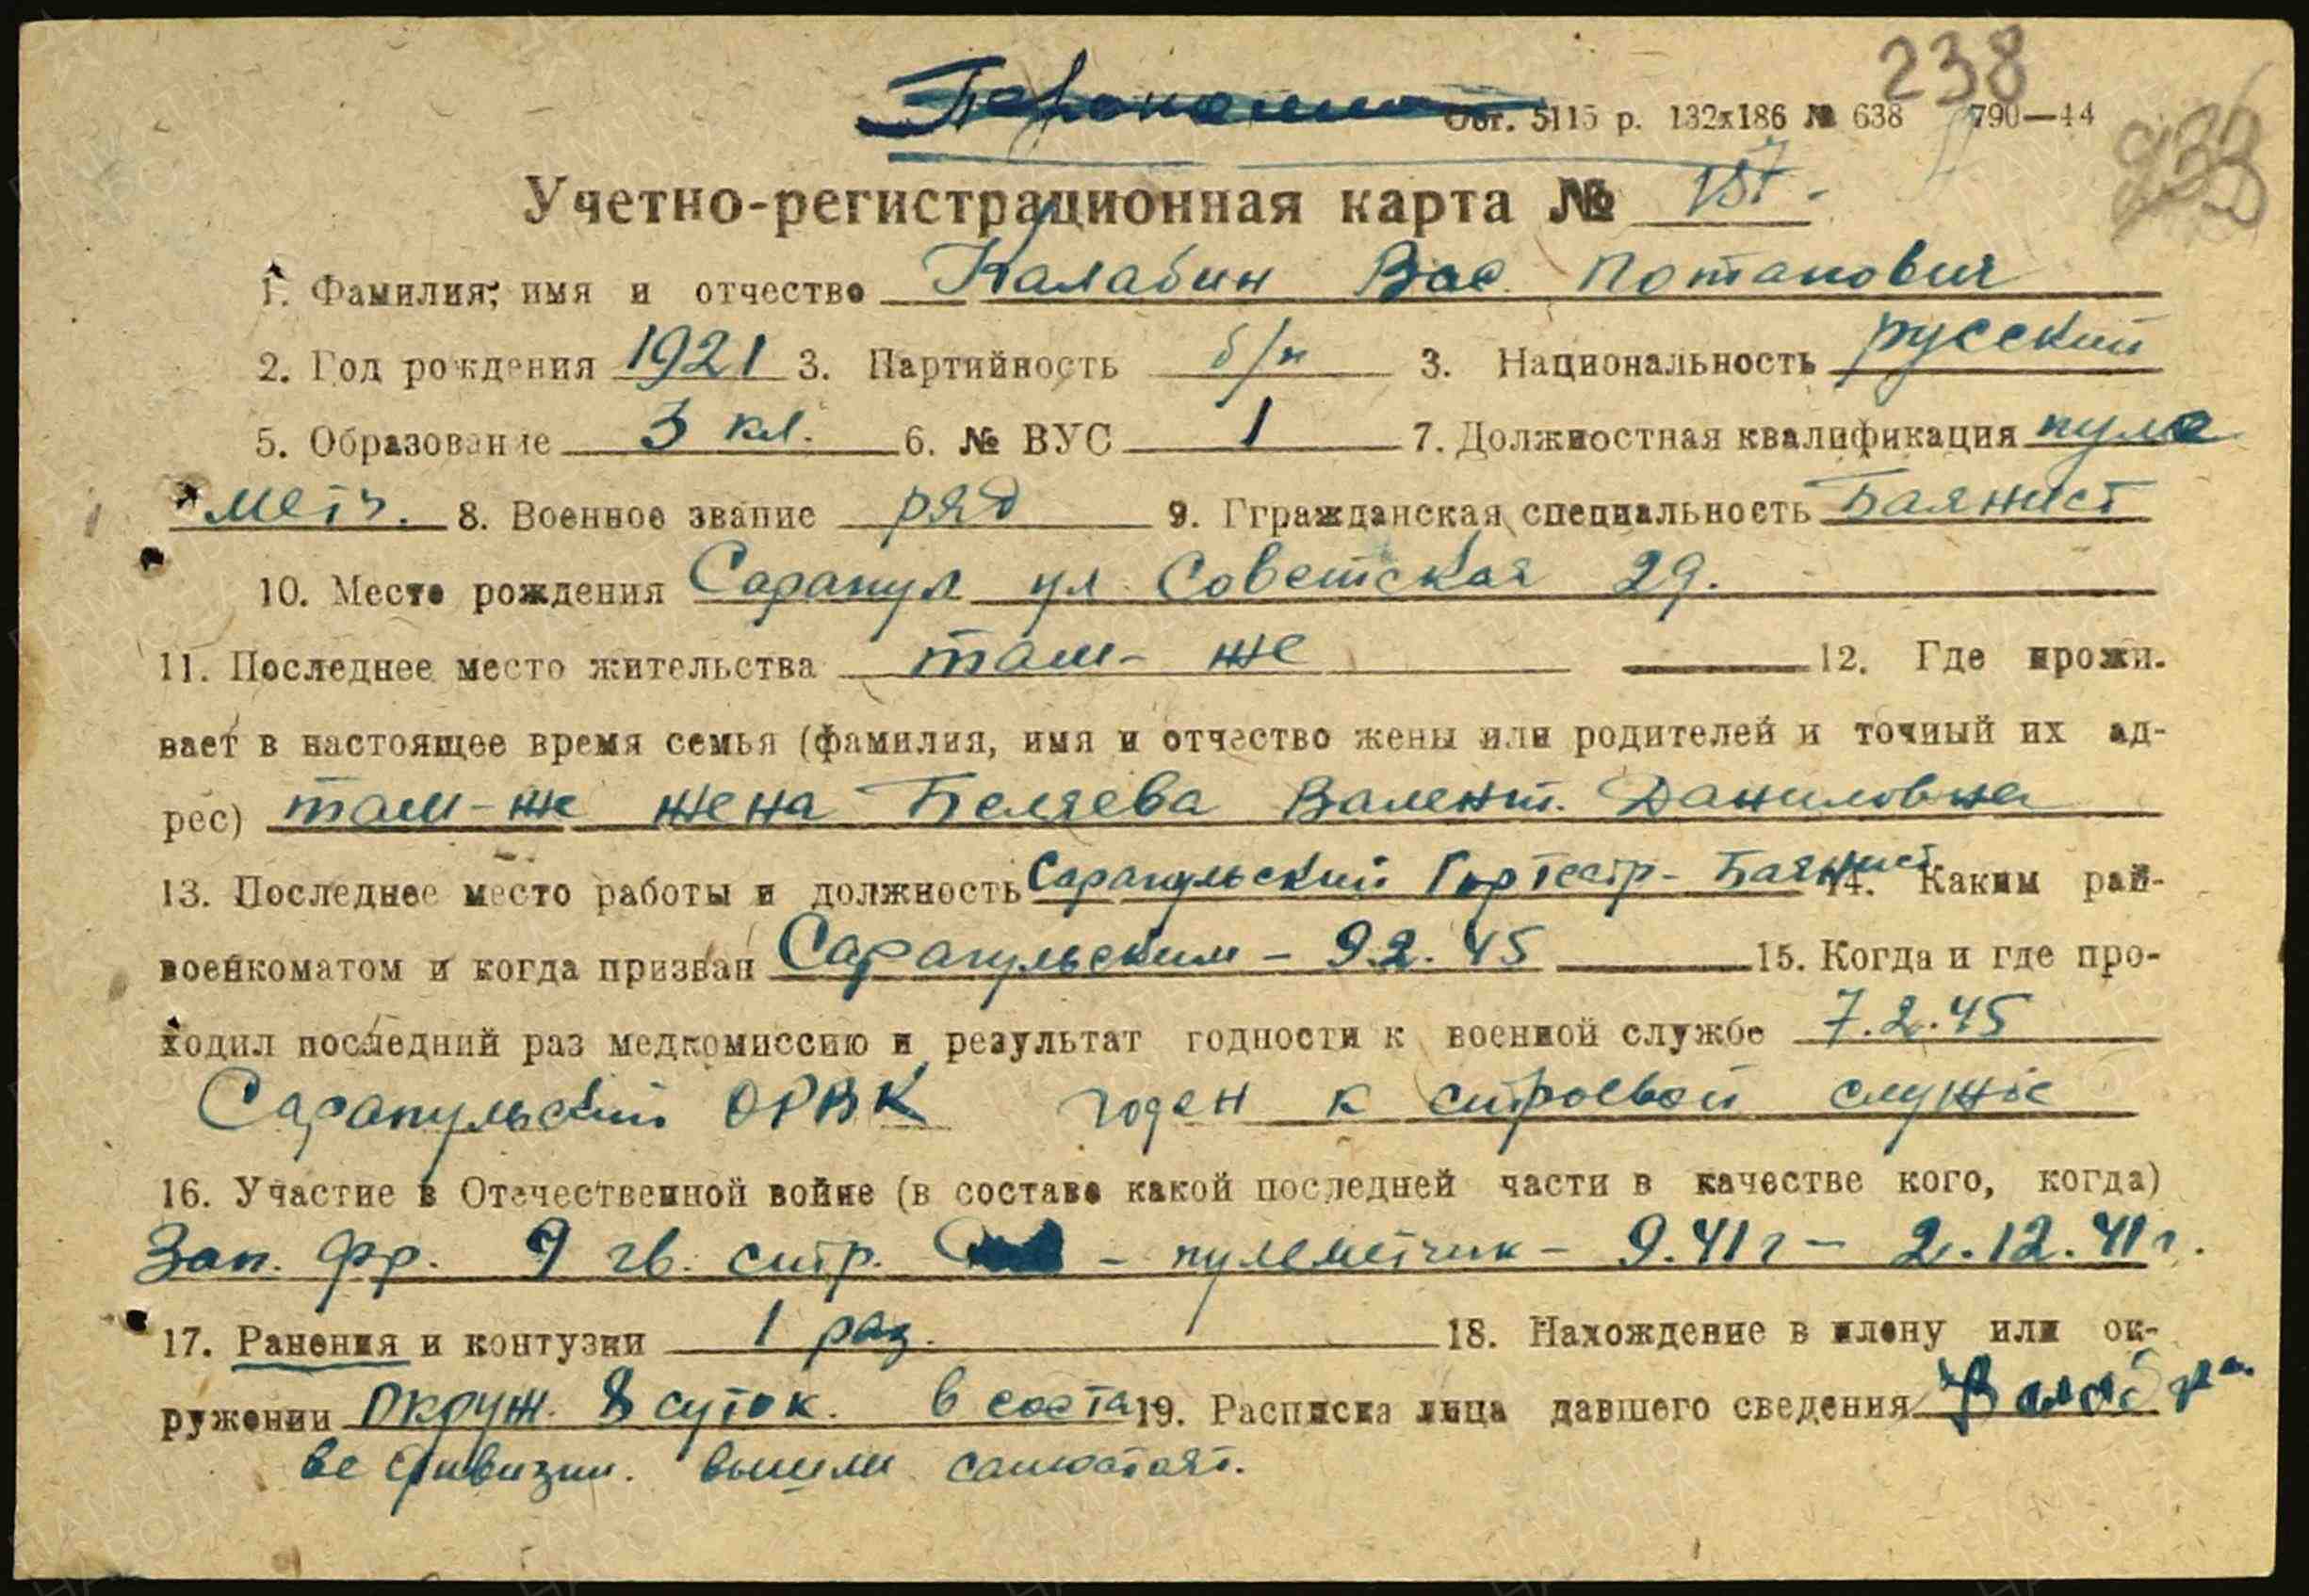 238
Обг. 5115 р. 132х186 № 638 790—44
233
Учетно-регистрационная карта №
1. Фамилия, имя и отчество Калабин Вас. Потапович
2. Год рождения 1921 3. Партийность б/п 3. Национальность русский
5. Образование 3 кл. 6. № ВУС 1 7. Должностная квалификация пуле
метч. 8. Военное звание ряд 9. Ггражданская специальность Баянист
10. Место рождения Сарапул ул. Советская 29.
11. Последнее место жительства там-же 12. Где прожи-
вает в настоящее время семья (фамилия, имя и отчество жены или родителей и точный их ад-
рес) там-же жена Беляева Валент. Даниловна
13. Последнее место работы и должность Сарапульский Гортеатр - Баянист 14. Каким рай-
военкоматом и когда призван Сарапульским - 9.2.45 15. Когда и где про-
ходил последний раз медкомиссию и результат годности к военной службе 7.2.45
Сарапульский ОРВК годен к строевой службе
16. Участие в Отечественной войне (в составе какой последней части в качестве кого, когда)
Зап. фр. 9 гв. стр. - пулеметчик - 9.41г - 2.12.41г.
17. Ранения и контузии 1 раз. 18. Нахождение в плену или ок-
ружении Окруж. 8 суток. в соста 19. Расписка лица давшего сведения
ве дивизии. вышли самостоят.